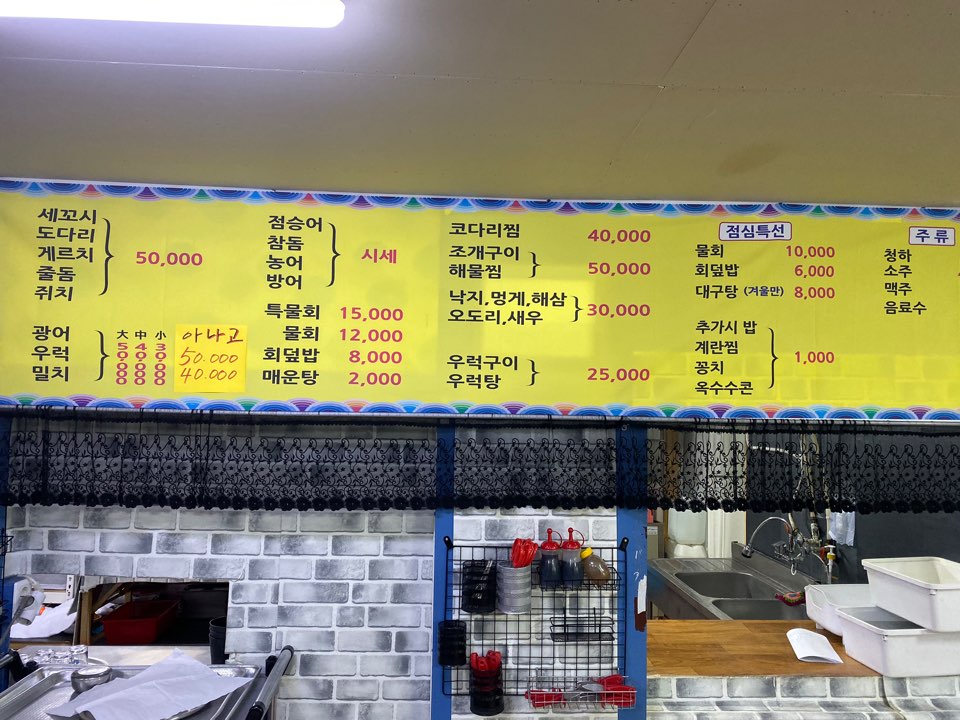 세꼬시
도다리
게르치
줄돔
쥐치
50,000
광어
우럭
밀치
大 中 小
50000 40000 30000
아나고
50.000
40.000
점승어
참돔
농어
방어
시세
특물회 15,000
물회 12,000
회덮밥 8,000
매운탕 2,000
코다리찜 40,000
조개구이
해물찜
50,000
낙지,멍게,해삼
오도리,새우
30,000
우럭구이
우럭탕
25,000
점심특선
물회 10,000
회덮밥 6,000
대구탕 (겨울만) 8,000
추가시 밥
계란찜
꽁치
옥수수콘
1,000
주류
청하
소주
맥주
음료수